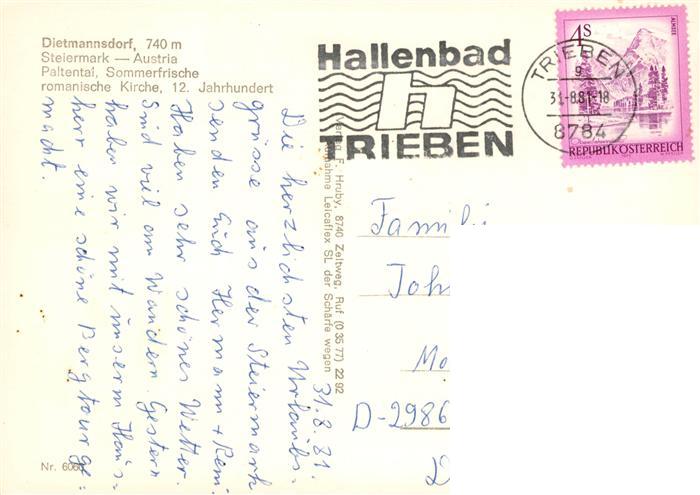 Dietmannsdorf, 740 m
Steiermark — Austria
Paltental, Sommerfrische
romanische Kirche, 12. Jahrhundert
Hallenbad
TRIEBEN
TRIEBEN
9
31.-8.81-18
8784
4S
ALMSEE
REPUBLIK ÖSTERREICH
31.8.81.
Die herzlichsten Urlaubs=
grüsse aus der Steiermark
senden Euch Hermann + Reni
Haben sehr schönes Wetter.
Sind viel am Wandern. Gestern
haben wir mit unserm Haus=
herr eine schöne Bergtour ge=
macht.
Verlag F. Hruby, 8740 Zeltweg, Ruf (0 35 77) 22 92
Aufnahme Leicaflex SL der Schärfe wegen
Famili
Joh
Mo
D-2986
Nr. 606